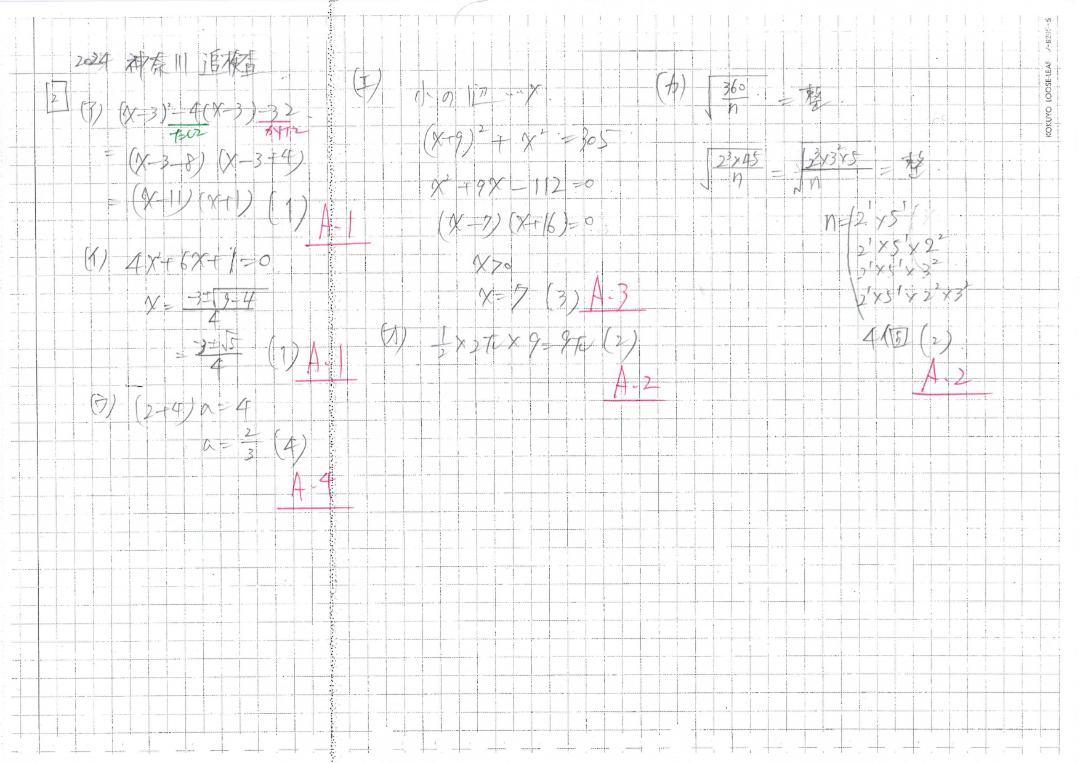 2024 神奈川 追検査
2
(ア) (x-3)²-4(x-3)-32
たして かけて
= (x-3-8)(x-3+4)
= (x-11)(x+1) (1)
A-1
(イ) 4x²+6x+1=0
x= -3±√9-4 / 4
= -3±√5 / 4 (1)
A-1
(ウ) (2+4)a=4
a= 2/3 (4)
A-4
(エ) 小の 辺 … x
(x+9)² + x² = 305
x²+9x-112=0
(x-7)(x+16)=0
x>0
x=7 (3)
A-3
(オ) 1/2 × 2π × 9 = 9π (2)
A-2
(カ) √360/n = 整
√2³×45/n = √2³×3²×5/n = 整
n= 2¹×5¹
2¹×5¹×2²
2¹×5¹×3²
2¹×5¹×2²×3²
4個 (2)
A-2
KOKUYO LOOSE-LEAF